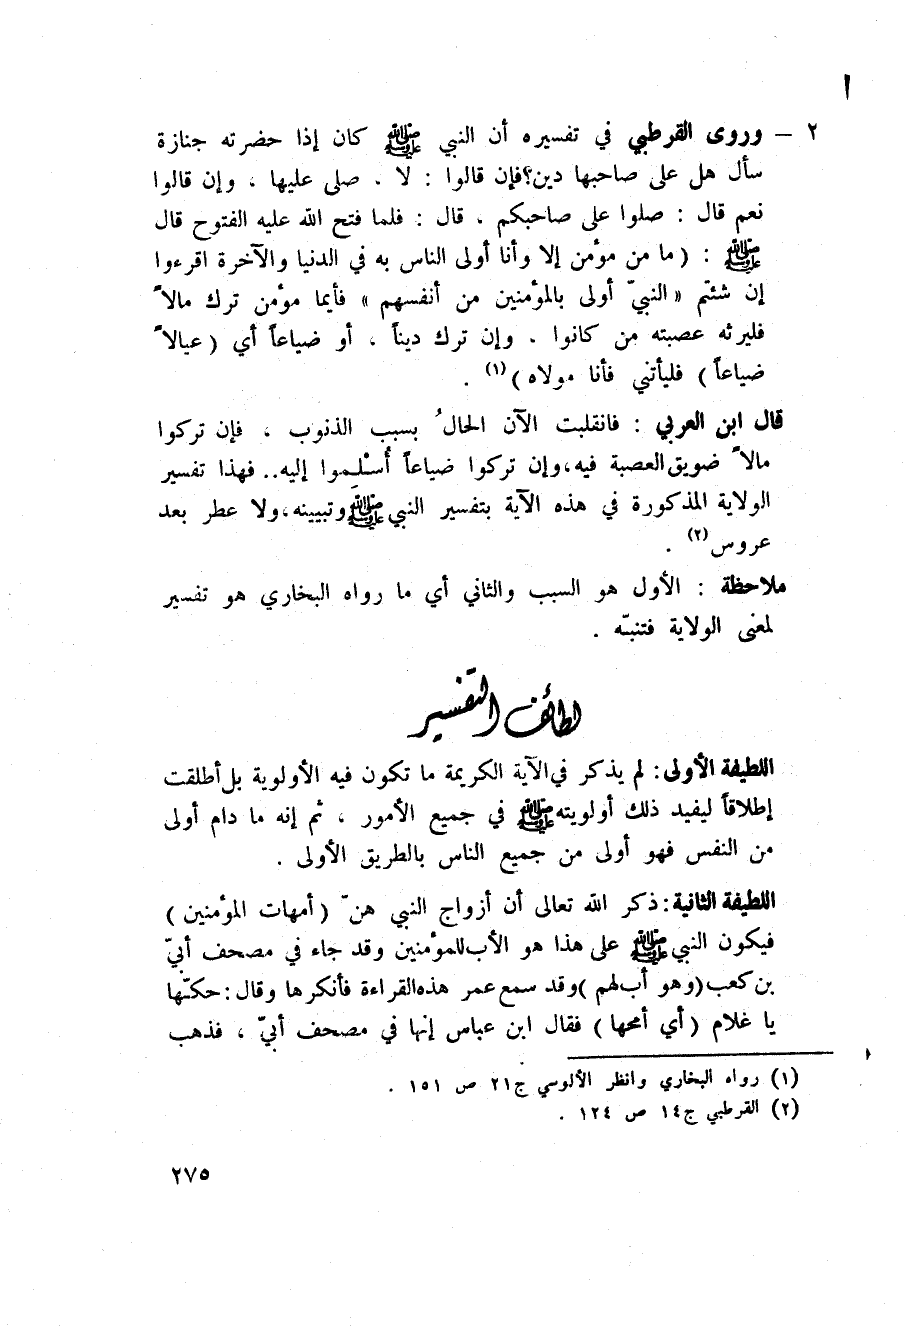 ٢ — وروى القرطبي في تفسيره أن النبي ﷺ كان إذا حضرته جنازة
سأل هل على صاحبها دين؟ فإن قالوا : لا . صلى عليها ، وإن قالوا
نعم قال : صلوا على صاحبكم . قال : فلما فتح الله عليه الفتوح قال
ﷺ : ( ما من مؤمن إلا وأنا أولى الناس به في الدنيا والآخرة اقرءوا
إن شئتم « النبيّ أولى بالمؤمنين من أنفسهم » فأيما مؤمن ترك مالاً
فليرثه عصبته من كانوا . وإن ترك ديناً ، أو ضياعاً أي ( عيالاً
ضياعاً ) فليأتني فأنا مولاه ) (١) .
قال ابن العربي : فانقلبت الآن الحالُ بسبب الذنوب ، فإن تركوا
مالاً ضويق العصبة فيه، وإن تركوا ضياعاً أُسْلِموا إليه.. فهذا تفسير
الولاية المذكورة في هذه الآية بتفسير النبي ﷺ وتبيينه، ولا عطر بعد
عروس (٢) .
ملاحظة : الأول هو السبب والثاني أي ما رواه البخاري هو تفسير
لمعنى الولاية فتنبّه .
لطائف التفسير
اللطيفة الأولى : لم يذكر في الآية الكريمة ما تكون فيه الأولوية بل أطلقت
إطلاقاً ليفيد ذلك أولويته ﷺ في جميع الأمور ، ثم إنه ما دام أولى
من النفس فهو أولى من جميع الناس بالطريق الأولى .
اللطيفة الثانية : ذكر الله تعالى أن أزواج النبي هنّ ( أمهات المؤمنين )
فيكون النبي ﷺ على هذا هو الأب للمؤمنين وقد جاء في مصحف أبيّ
بن كعب ( وهو أب لهم ) وقد سمع عمر هذه القراءة فأنكرها وقال : حكّها
يا غلام ( أي أمحها ) فقال ابن عباس إنها في مصحف أبيّ ، فذهب
(١) رواه البخاري وانظر الألوسي ج٢١ ص ١٥١ .
(٢) القرطبي ج١٤ ص ١٢٤ .
٢٧٥